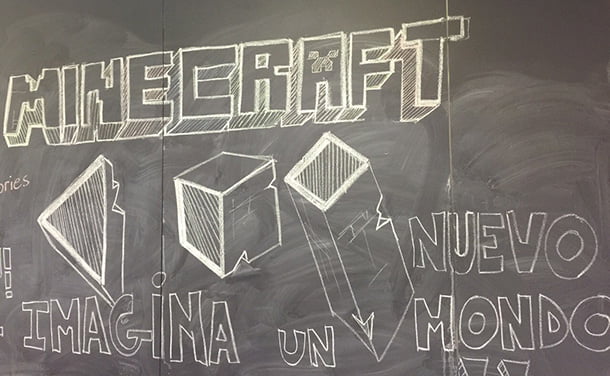 MINECRAFT
ories
NUEVO
IMAGINA UN MONDO